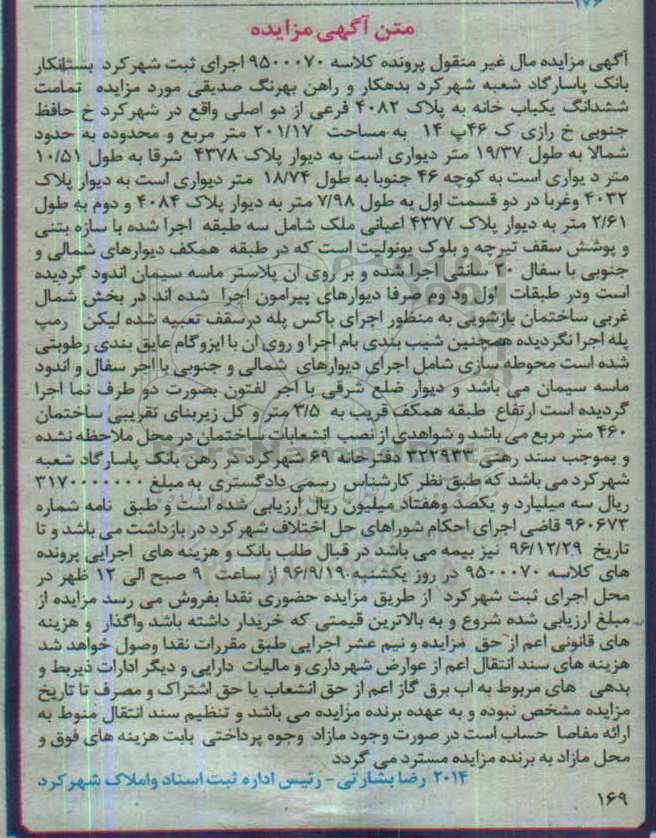 ۱۷۶
متن آگهی مزایده
آگهی مزایده مال غیر منقول پرونده کلاسه ۹۵۰۰۰۷۰ اجرای ثبت شهرکرد بستانکار
بانک پاسارگاد شعبه شهرکرد بدهکار و راهن بهرنگ صدیقی مورد مزایده تمامت
ششدانگ یکباب خانه به پلاک ۴۰۸۲ فرعی از دو اصلی واقع در شهرکرد خ حافظ
جنوبی خ رازی ک ۴۶پ ۱۴ به مساحت ۲۰۱/۱۷ متر مربع و محدوده به حدود
شمالا به طول ۱۹/۳۷ متر دیواری است به دیوار پلاک ۴۳۷۸ شرقا به طول ۱۰/۵۱
متر د یواری است به کوچه ۴۶ جنوبا به طول ۱۸/۷۴ متر دیواری است به دیوار پلاک
۴۰۳۲ وغربا در دو قسمت اول به طول ۷/۹۸ متر به دیوار پلاک ۴۰۸۴ و دوم به طول
۲/۶۱ متر به دیوار پلاک ۴۳۷۷ اعیانی ملک شامل سه طبقه اجرا شده با سازه بتنی
و پوشش سقف تیرچه و بلوک یونولیت است که در طبقه همکف دیوارهای شمالی و
جنوبی با سفال ۲۰ سانتی اجرا شده و بر روی ان پلاستر ماسه سیمان اندود گردیده
است ودر طبقات اول ود وم صرفا دیوارهای پیرامون اجرا شده اند در بخش شمال
غربی ساختمان بازشویی به منظور اجرای باکس پله درسقف تعبیه شده لیکن رمپ
پله اجرا نگردیده همچنین شیب بندی بام اجرا و روی ان با ایزوگام عایق بندی رطوبتی
شده است محوطه سازی شامل اجرای دیوارهای شمالی و جنوبی با اجر سفال و اندود
ماسه سیمان می باشد و دیوار ضلع شرقی با اجر لفتون بصورت دو طرف نما اجرا
گردیده است ارتفاع طبقه همکف قریب به ۳/۵ متر و کل زیربنای تقریبی ساختمان
۴۶۰ متر مربع می باشد و شواهدی از نصب انشعابات ساختمان در محل ملاحظه نشده
و بموجب سند رهنی ۳۲۲۹۳۳ دفترخانه ۶۹ شهرکرد در رهن بانک پاسارگاد شعبه
شهرکرد می باشد که طبق نظر کارشناس رسمی دادگستری به مبلغ ۳۱۷۰۰۰۰۰۰۰
ریال سه میلیارد و یکصد وهفتاد میلیون ریال ارزیابی شده است و طبق نامه شماره
۹۶۰۶۷۳ قاضی اجرای احکام شوراهای حل اختلاف شهرکرد در بازداشت می باشد و تا
تاریخ ۹۶/۱۲/۲۹ نیز بیمه می باشد در قبال طلب بانک و هزینه های اجرایی پرونده
های کلاسه ۹۵۰۰۰۷۰ در روز یکشنبه ۹۶/۹/۱۹ از ساعت ۹ صبح الی ۱۲ ظهر در
محل اجرای ثبت شهرکرد از طریق مزایده حضوری نقدا بفروش می رسد مزایده از
مبلغ ارزیابی شده شروع و به بالاترین قیمتی که خریدار داشته باشد واگذار و هزینه
های قانونی اعم از حق مزایده و نیم عشر اجرایی طبق مقررات نقدا وصول خواهد شد
هزینه های سند انتقال اعم از عوارض شهرداری و مالیات دارایی و دیگر ادارات ذیربط و
بدهی های مربوط به اب برق گاز اعم از حق انشعاب یا حق اشتراک و مصرف تا تاریخ
مزایده مشخص نبوده و به عهده برنده مزایده می باشد و تنظیم سند انتقال منوط به
ارائه مفاصا حساب است در صورت وجود مازاد وجوه پرداختی بابت هزینه های فوق و
محل مازاد به برنده مزایده مسترد می گردد
۲۰۱۴ رضا بشارتی - رئیس اداره ثبت اسناد واملاک شهرکرد
۱۶۹